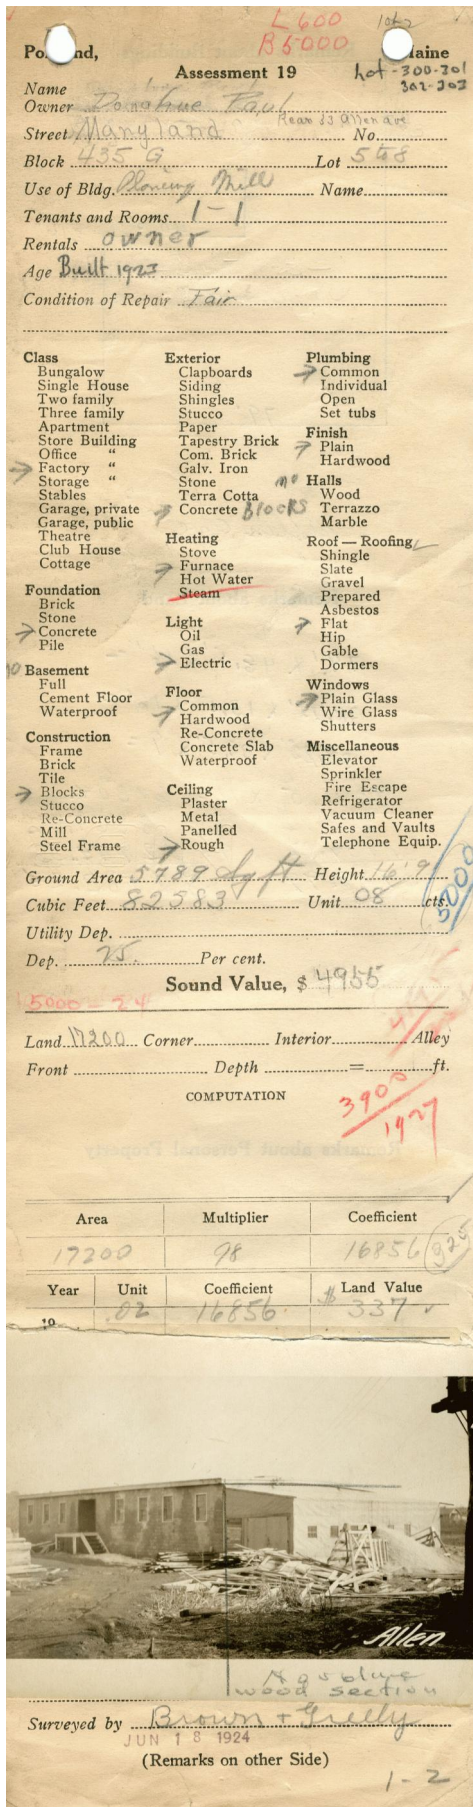 L 600
B 5000
Portland, Maine
Assessment 19
Lot - 300-301
302-303
Name
Owner Donahue Paul
Rear 33 Allen ave
Street Maryland No.
Block 435 G Lot 5 to 8
Use of Bldg. Planing Mill Name
Tenants and Rooms 1-1
Rentals owner
Age Built 1923
Condition of Repair Fair
Class
Bungalow
Single House
Two family
Three family
Apartment
Store Building
Office "
Factory "
Storage "
Stables
Garage, private
Garage, public
Theatre
Club House
Cottage
Foundation
Brick
Stone
Concrete
Pile
no Basement
Full
Cement Floor
Waterproof
Construction
Frame
Brick
Tile
Blocks
Stucco
Re-Concrete
Mill
Steel Frame
Exterior
Clapboards
Siding
Shingles
Stucco
Paper
Tapestry Brick
Com. Brick
Galv. Iron
Stone
Terra Cotta
Concrete Blocks
Heating
Stove
Furnace
Hot Water
Steam
Light
Oil
Gas
Electric
Floor
Common
Hardwood
Re-Concrete
Concrete Slab
Waterproof
Ceiling
Plaster
Metal
Panelled
Rough
Plumbing
Common
Individual
Open
Set tubs
Finish
Plain
Hardwood
no Halls
Wood
Terrazzo
Marble
Roof — Roofing
Shingle
Slate
Gravel
Prepared
Asbestos
Flat
Hip
Gable
Dormers
Windows
Plain Glass
Wire Glass
Shutters
Miscellaneous
Elevator
Sprinkler
Fire Escape
Refrigerator
Vacuum Cleaner
Safes and Vaults
Telephone Equip.
Ground Area 5789 Sq ft Height 16'9
Cubic Feet 82583 Unit 08 cts.
5000
Utility Dep.
Dep. 25. Per cent.
Sound Value, $ 4955
5000 - 24
Land 17200 Corner Interior Alley
Front Depth = ft.
COMPUTATION
3900
1927
Area Multiplier Coefficient
17200 98 16856 325
Year Unit Coefficient Land Value
19 .02 16856 $ 337
Allen
wood section
Surveyed by Brown + Greely
JUN 18 1924
(Remarks on other Side)
1-2